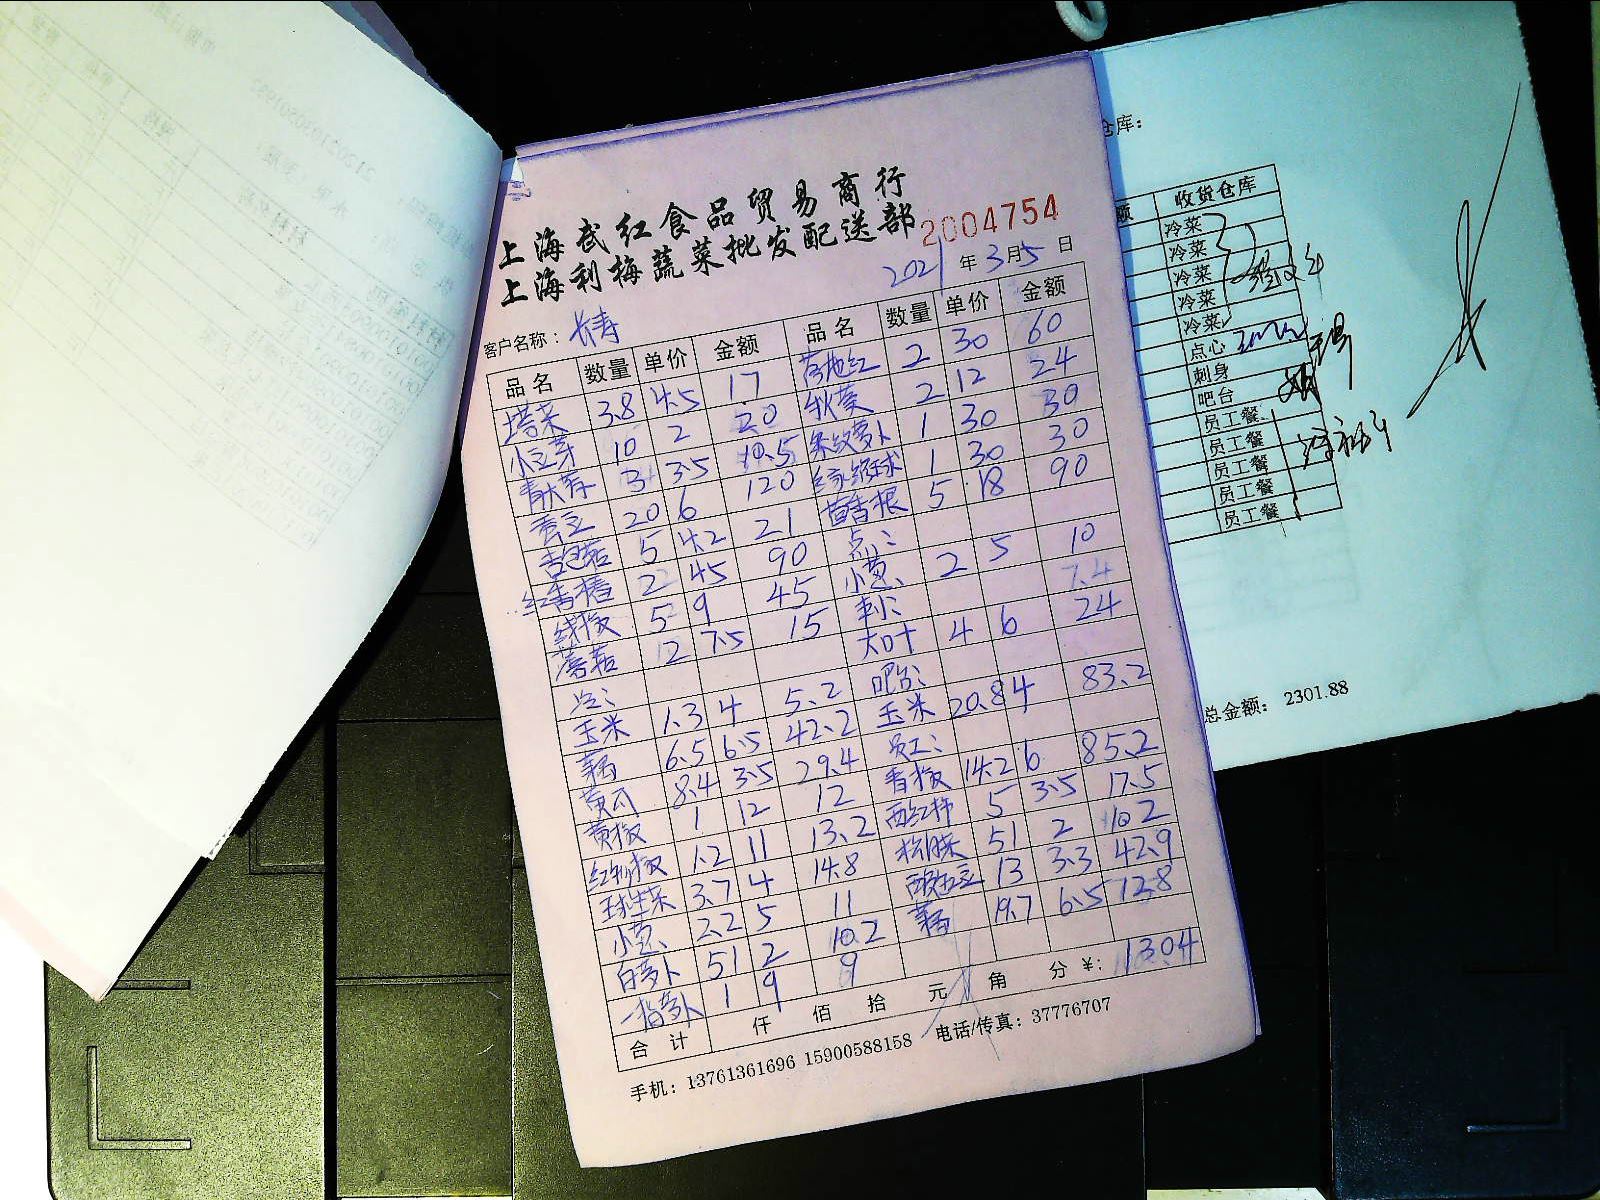 上海武红食品贸易商行
上海利梅蔬菜批发配送部
2004754
2021 年 3 月 5 日
客户名称： 长寿
品名 数量 单价 金额
塔菜 3.8 4.5 17
小豆芽 10 2 20
3 3.5 10.5
蚕豆 20 6 120
5 4.2 21
红香椿 2 45 90
线椒 5 9 45
蘑菇 2 7.5 15
冷：
玉米 1.3 4 5.2
藕 6.5 6.5 42.2
黄瓜 8.4 3.5 29.4
黄椒 1 12 12
红椒 1.2 11 13.2
球生菜 3.7 4 14.8
小葱 2.2 5 11
白萝卜 5.1 2 10.2
一指萝卜 1 9 9
品名 数量 单价 金额
落地红 2 30 60
秋葵 2 12 24
条纹萝卜 1 30 30
1 30 30
茴香根 5 18 90
点：
小葱 2 5 10
刺：
7.4
大叶 4 6 24
吧台：
玉米 20.8 4 83.2
员工：
青椒 14.2 6 85.2
西红柿 5 3.5 17.5
5.1 2 10.2
13 3.3 42.9
藕 19.7 6.5 128
合计 仟 佰 拾 元 角 分 ￥： 1304
手机：13761361696 15900588158 电话/传真：37776707
仓库：
额 收货仓库
冷菜
冷菜
冷菜
冷菜
冷菜
点心
刺身
吧台
员工餐
员工餐
员工餐
员工餐
员工餐
总金额： 2301.88